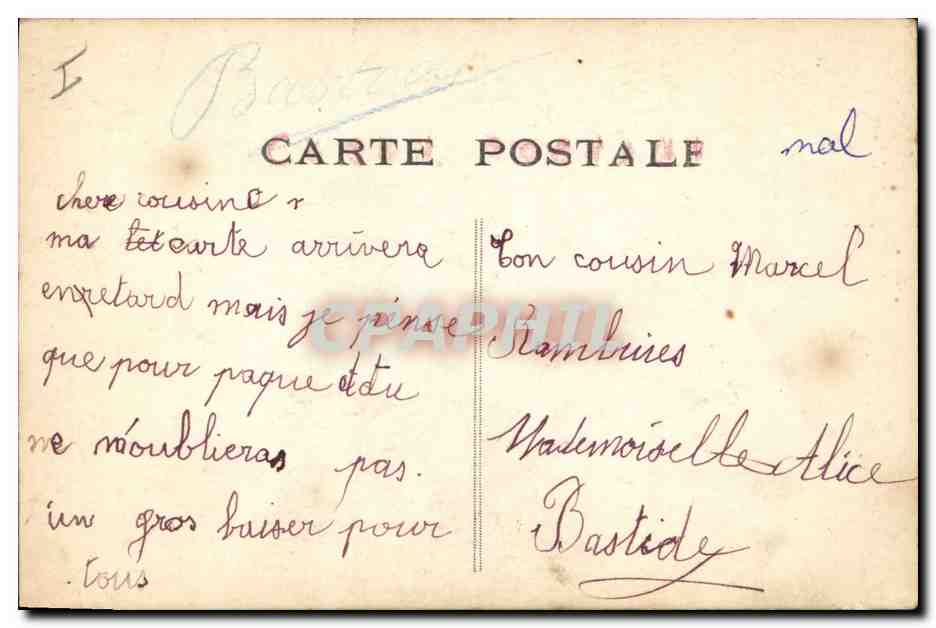 I
CARTE POSTALE
mal
chere cousine
ma carte arrivera
en retard mais je pense
que pour paque tu
ne m'oublieras pas.
un gros baiser pour
tous
Ton cousin Marcel
Mademoiselle Alice
Bastide
CPAPHIL